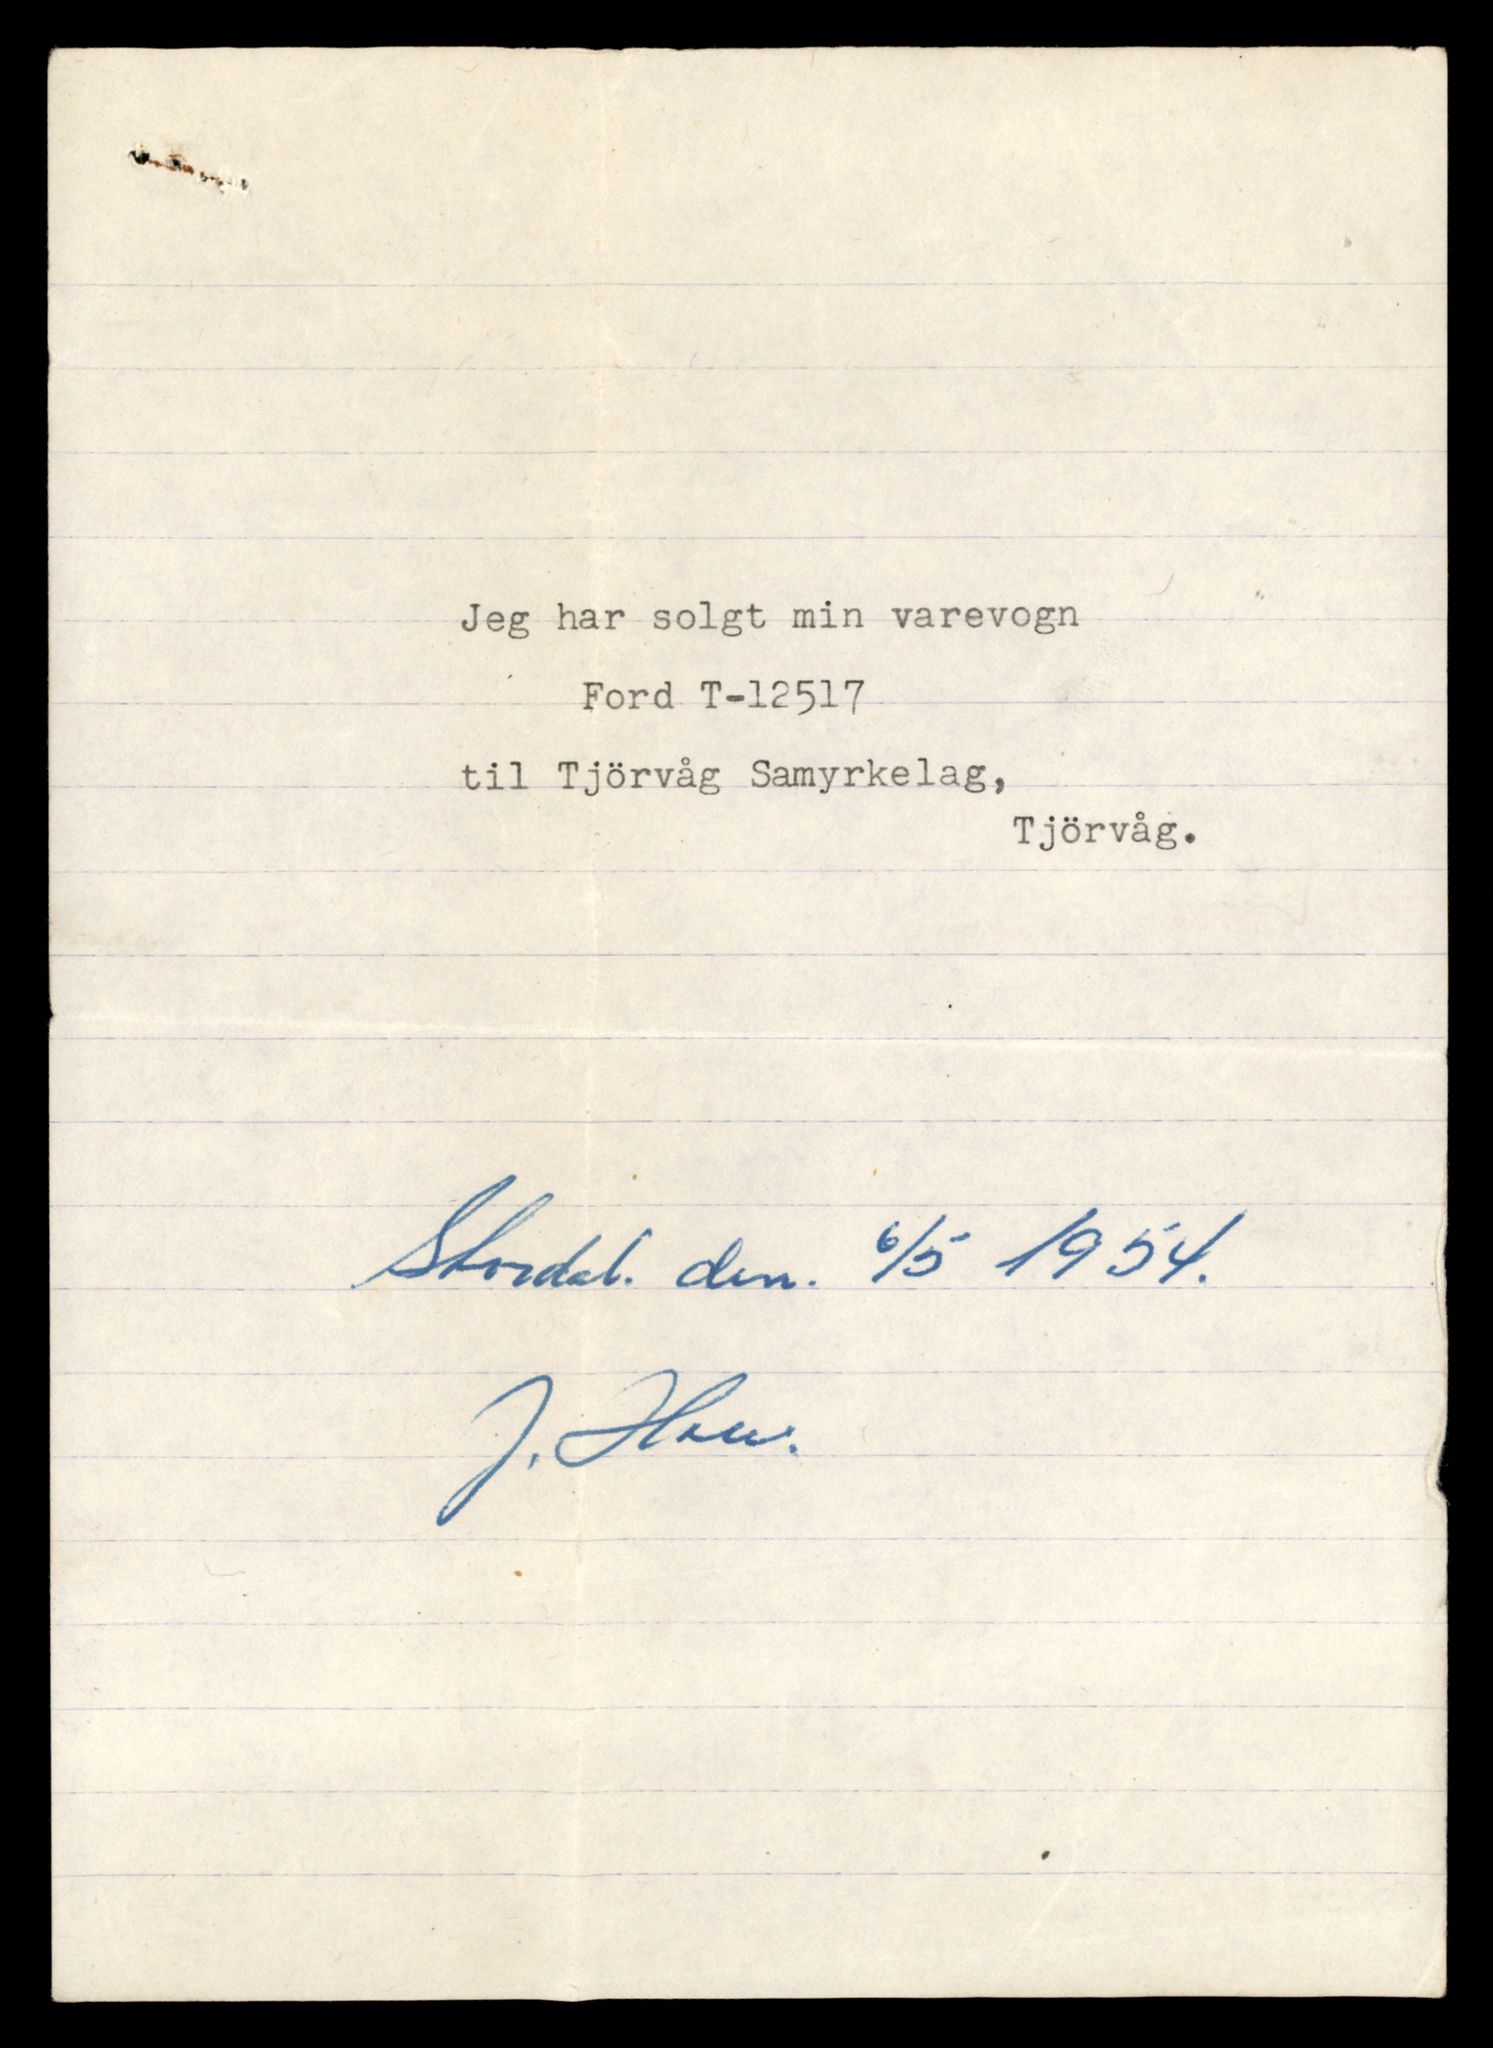 Jeg har solgt min varevogn
Ford T-12517
til Tjörvåg Samyrkelag,
Tjörvåg.
den. 6/5 1954.
J.